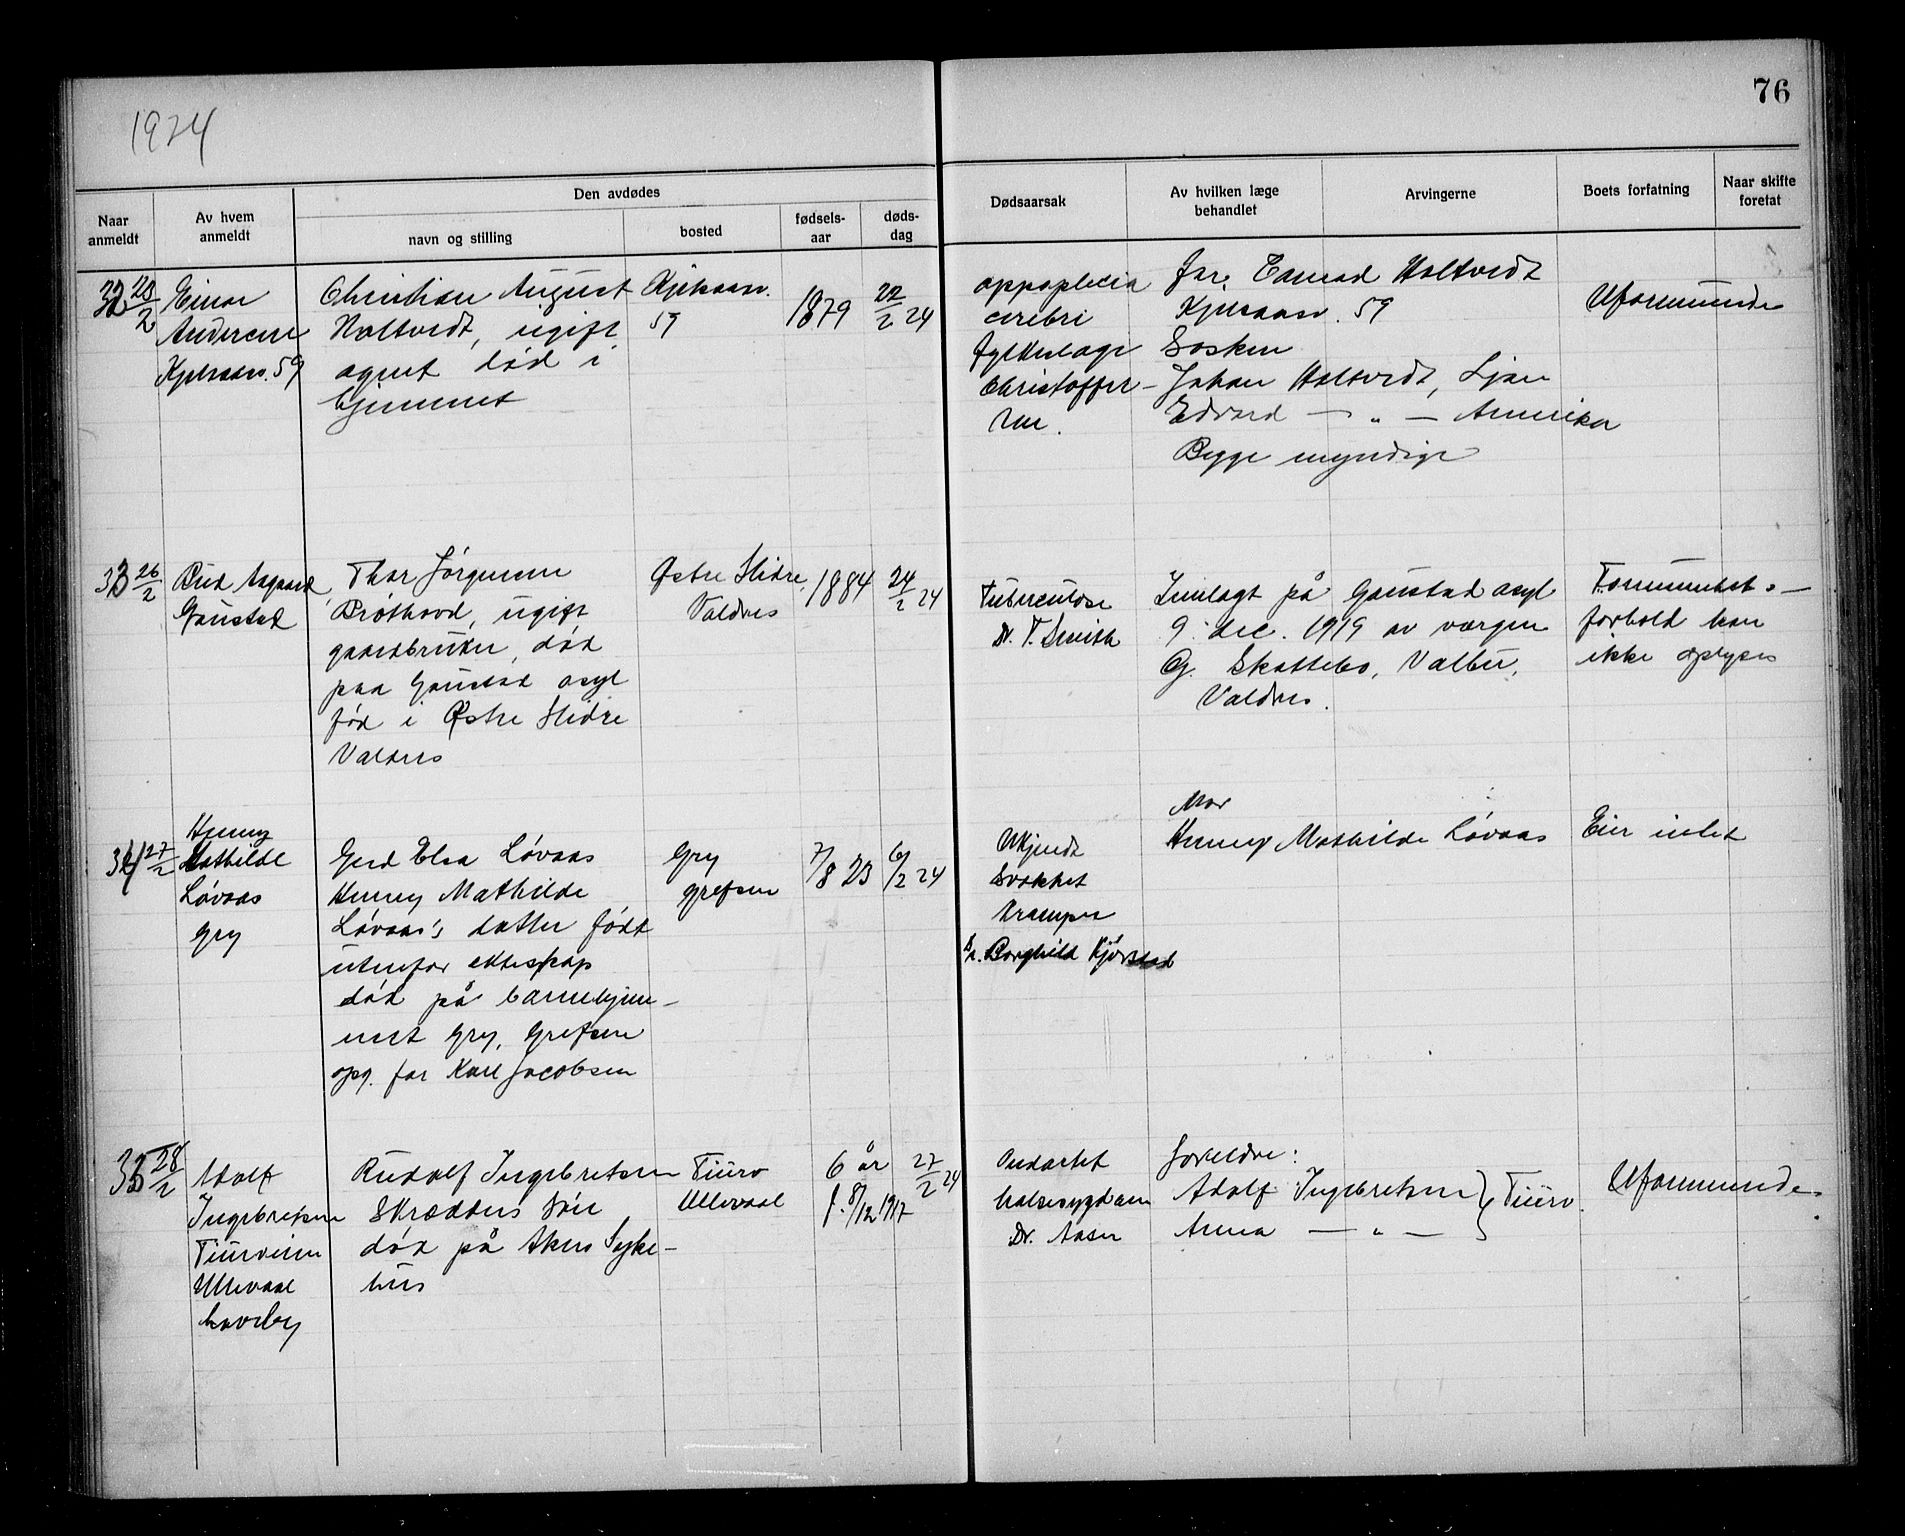 1924
76
Den avdødes
Naar anmeldt
Av hvem anmeldt
navn og stilling
bosted
fødsels-aar
døds-dag
Dødsaarsak
Av hvilken læge behandlet
Arvingerne
Boets forfatning
Naar skifte foretat
32 23/2
Einar
Andersen
Kjelsaasv. 59
Christian August
Holtvedt, ugift
agent død i
hjemmet
Kjelsaasv.
59
1879
22/2 24
appoplecia
cerebri
fylkeslæge
Christoffer-
sen.
far, Conrad Holtvedt
Kjelsaasv. 59
Søsken
Johan Holtvedt, Ljan
Edvard — „ — Amerika
Begge myndige
Uformuende
33 26/2
Rud Asgaard
Gaustad
Thor Jørgensen
Bröthovd, ugift
gaardbruker, død
paa Gaustad asyl
fød i Østre Slidre
Valdres
Østre Slidre,
Valdres
1884
24/2 24
Tuberculose
Dr. T. Smith
Innlagt på Gaustad asyl
9. dec. 1919 av værgen
G. Skattebo, Valbu,
Valdres.
Formuets-
forhold kan
ikke oplyses
34 27/2
Henny
Mathilde
Løvaas
Gry
Gerd Elsa Løvaas
Henny Mathilde
Løvaas's datter født
utenfor ekteskap
død på barnehjem-
met Gry, Grefsen
opg. far Karl Jacobsen
Gry
Grefsen
7/8 23
6/2 24
Ukjendt
Svakhet
Kramper
Dr. Borghild Kjørstad
Mor
Henny Mathilde Løvaas
Eier intet
35 28/2
Adolf
Ingebretsen
Tiurveien
Ullevaal
haveby
Rudolf Ingebretsen
Skrædders søn
død på Akers Syke-
hus
Tiurv
Ullevaal
6 år
f. 8/12 1917
27/2 24
Ondartet
halssygdom
Dr. Aaser
foreldre:
Adolf Ingebretsen } Tiurv.
Anna — „ —
Uformuende